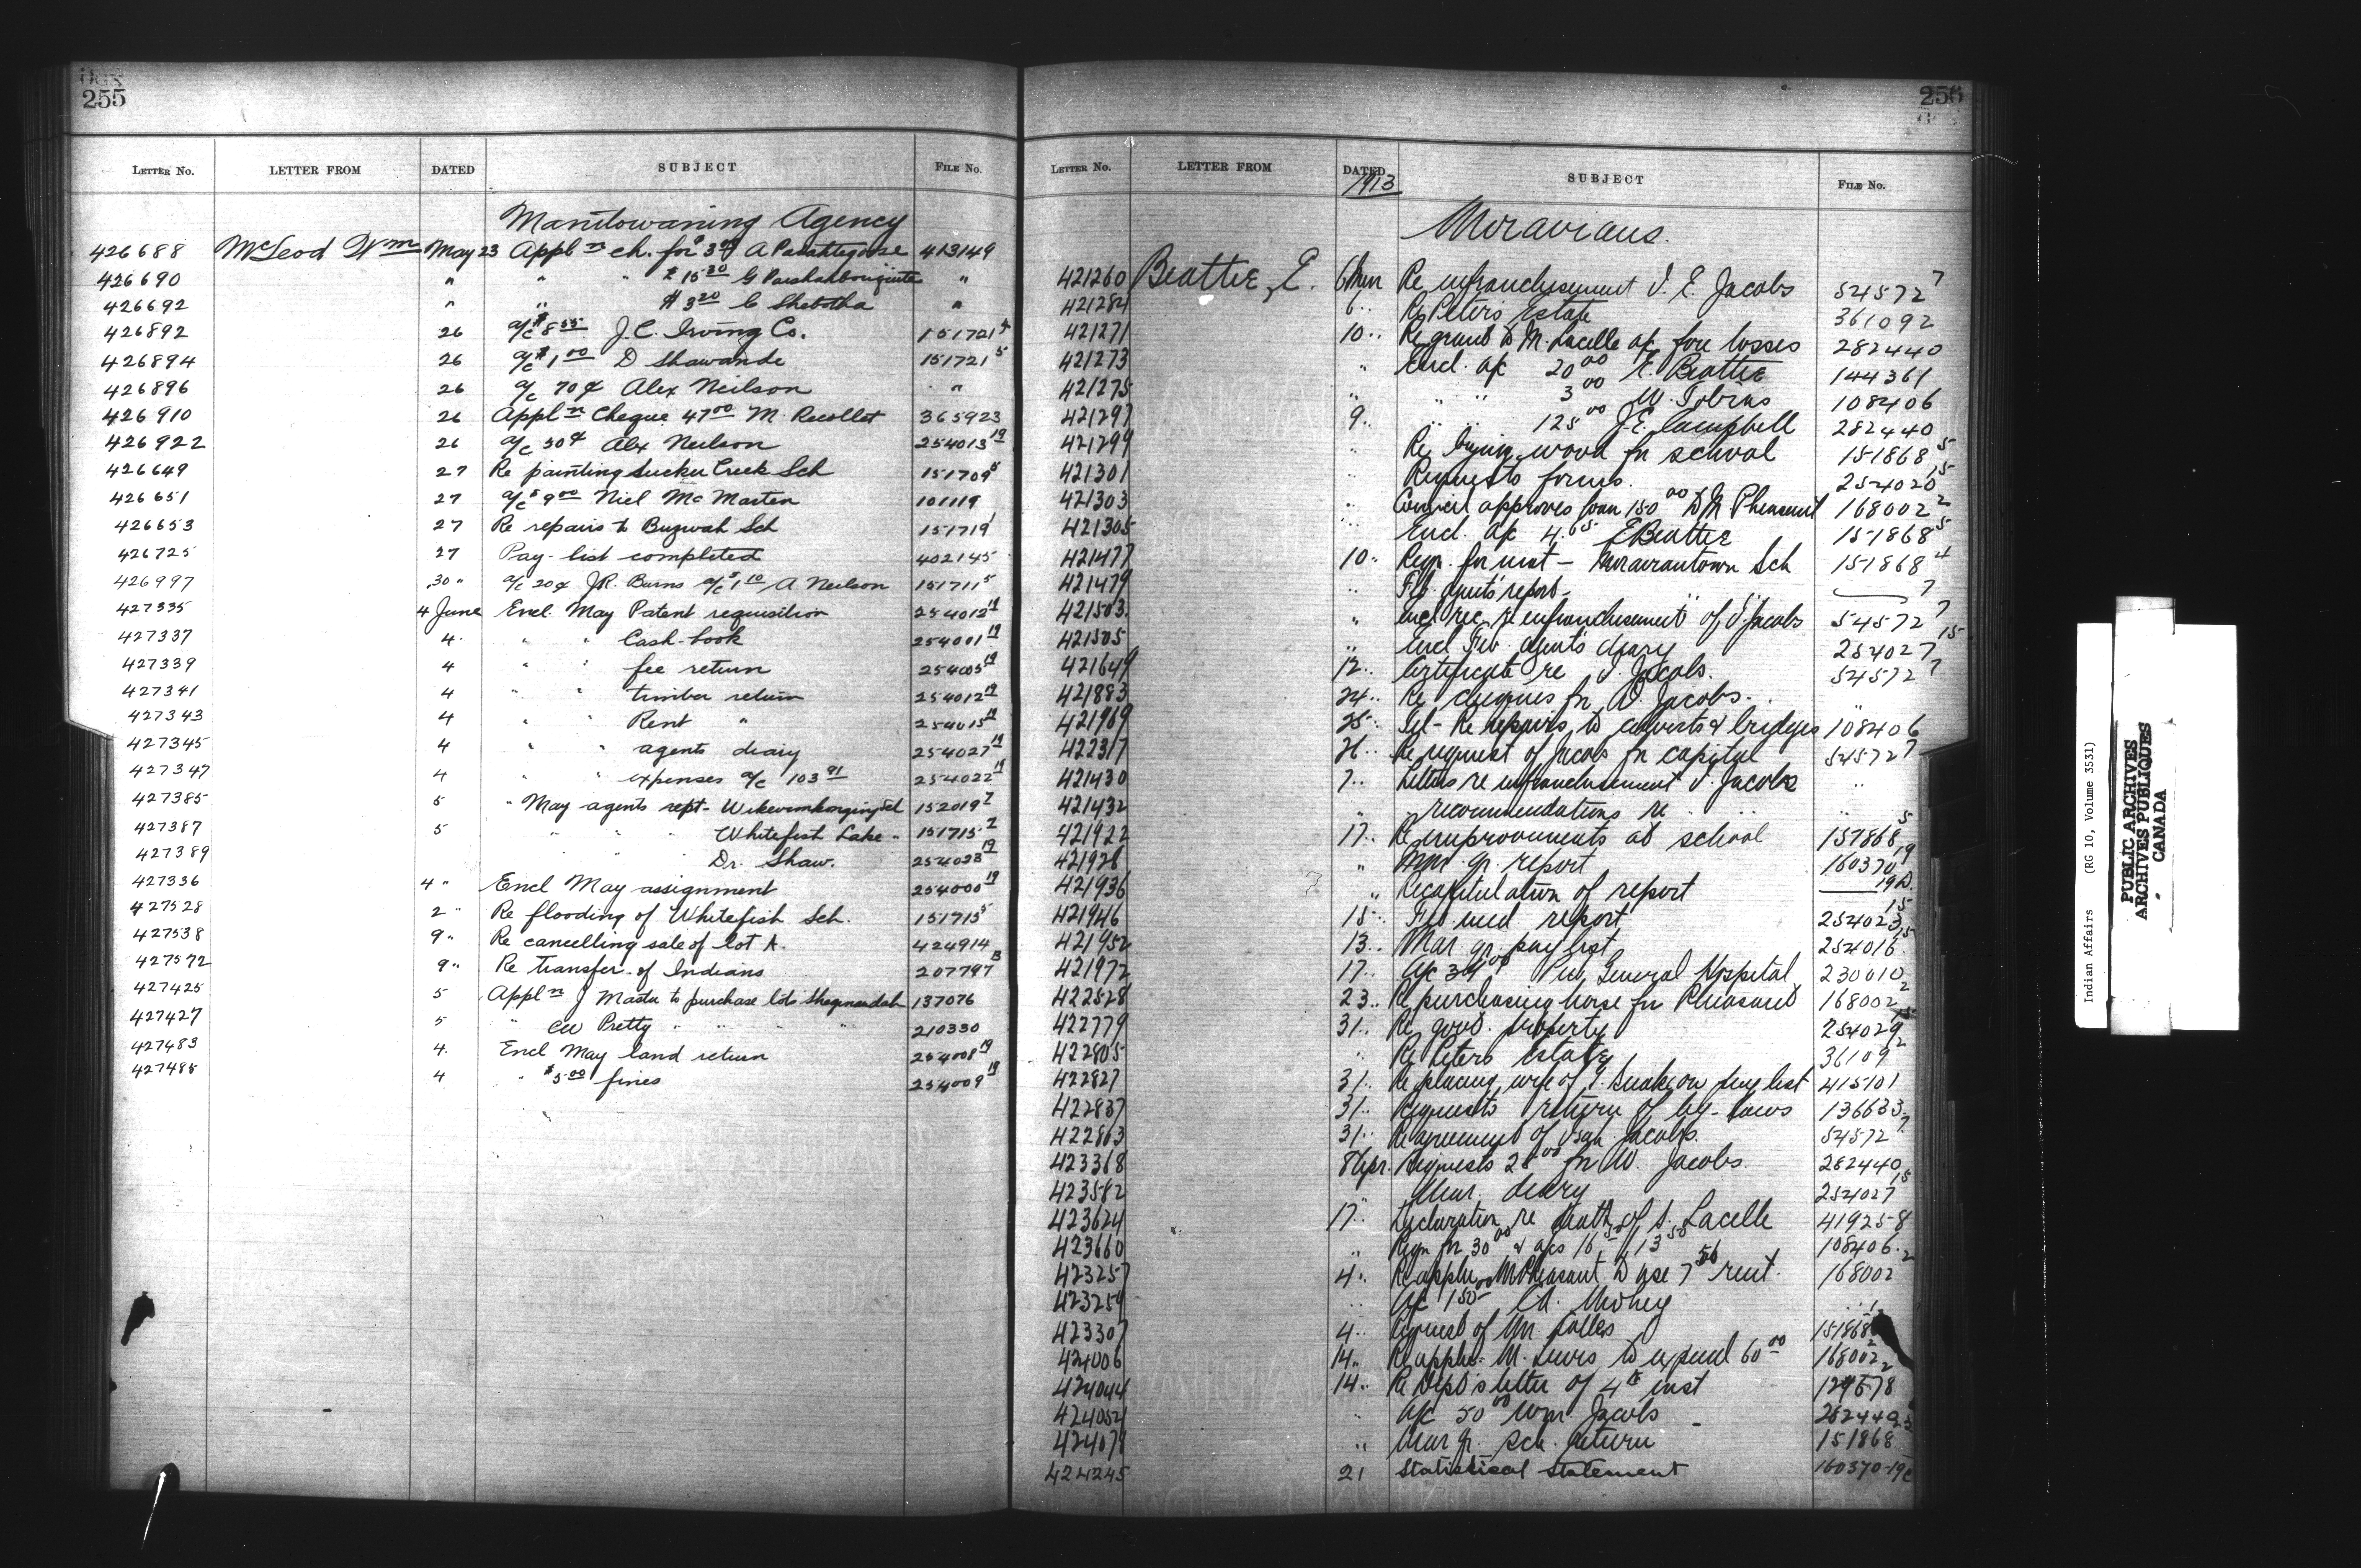 255
LETTER No. LETTER FROM DATED SUBJECT FILE No.
Manitowaning Agency
426688 McLeod Wm May 23 Appln ch. for $3 A 413149
426690 " " " $15.20 G "
426692 " " $3.20 C Shebotha "
426892 26 a/c $8.55 J.C. Irving Co. 151721
426894 26 a/c $1.00 D Shawande 151721 5
426896 26 a/c 70¢ Alex Neilson "
426910 26 Appln Cheque 47.00 M. Recollet 365923
426922 26 a/c 50¢ Alex Neilson 254013 19
426649 27 Re painting Sucker Creek Sch 151709
426651 27 a/c $9.00 Niel McMaster 101119
426653 27 Re repairs to Buzwah Sch 151719 1
426725 27 Pay-list completed 402145
426997 30 " a/c 20¢ J.R. Burns a/c $1.10 A Neilson 151711 5
427335 4 June Encl. May Patent requisition 254012 19
427337 4 " " Cash-book 254001 19
427339 4 " " fee return 254005 19
427341 4 " " timber return 254012 19
427343 4 " " Rent " 254015 19
427345 4 " " agents diary 254027 19
427347 4 " " expenses a/c 103.91 254022 19
427385 5 " May agents rept- Sch 152019
427387 5 " " Whitefish Lake " 151715
427389 " " Dr. Shaw. 254023 19
427336 4 " Encl May assignment 254000 19
427528 2 " Re flooding of Whitefish Sch. 151715 5
427538 9 " Re cancelling sale of lot A. 424914
427572 9 " Re transfer of Indians 207797 B
427425 5 Appln J Master to purchase lots 137076
427427 5 " CW Pretty " " " 210330
427483 4 Encl May land return 254008 19
427485 4 " $5.00 fines 254009 19
256
LETTER No. LETTER FROM DATED SUBJECT FILE No.
1913
Moravians.
421260 Beattie, E. 6 Mar Re enfranchisement J. E. Jacobs 54572 7
421284 6 " Re Peters Estate 361092
421271 10 " Re grant to M. Lacelle a/c fire losses 282440
421273 " Encl. a/c 20.00 E. Beattie 144361
421275 " " " 3.00 W. Tobias 108406
421297 9 " " " 125.00 J.E. Campbell 282440
421299 " Re buying wood for school 151868 5
421301 " Requests forms. 254020 15
421303 " Council approves loan 150.00 to M Pheasant 168002 2
421305 " Encl. a/c 4.65 E Beattie 151868 5
421477 10 " Reqn. for mat - Moraviantown Sch 151868 4
421479 " Feb. agents' report -
421503 " Encl rec. re enfranchisement of J. Jacobs 54572 7
421505 " Encl Feb. agents diary 254027 15
421649 12 " Certificate re J. Jacobs. 54572 7
421883 24 " Re cheques for J. Jacobs. "
421969 25 " Tel - Re repairs to culverts & bridges 108406
422317 26 Re request of Jacobs for capital 54572 7
421430 7 " Letters re enfranchisement J. Jacobs "
421432 " " recommendations re " "
421922 17 " Re improvements at school 151868 5
421928 " Mar qr. report 160370 19
421936 " Recapitulation of report 19D.
421946 15 " Feb med report 254023 15
421952 13 " Mar. qr. pay list 254016 15
421972 17 " General Hospital 230010
422528 23 " Re purchasing horse for Pheasant 168002 2
422779 31 " Re govt. property 254029 15
422805 " Re Peters Estate 361092
422827 31 " Re placing wife of J. Snake on pay list 415101
422837 31 " Requests return of by-laws 136633
422863 31 " Re agreement of Jacobs. 54572 7
423368 8 Apr. Requests 25.00 for W. Jacobs. 282440
423582 Mar. diary 254027 15
423624 17 " Declaration re death of S. Lacelle 419258
423660 " Reqn for 30.00 & a/cs 16.50, 13.50 108406
423257 4 " Re appln M Pheasant to use 7.50 rent. 168002 2
423259 " a/c 150
423307 4 " Request of 151868
424006 14 " Re appln M. Lewis to expend 60.00 168002 2
424044 14 " Re Dept's letter of 4th inst 129578
424052 " a/c 50.00 Wm. Jacobs 282440
424079 " Mar qr. Sch. return 151868
424245 21 Statistical Statement 160370-19
Indian Affairs (RG 10, Volume 3531)
PUBLIC ARCHIVES
ARCHIVES PUBLIQUES
CANADA